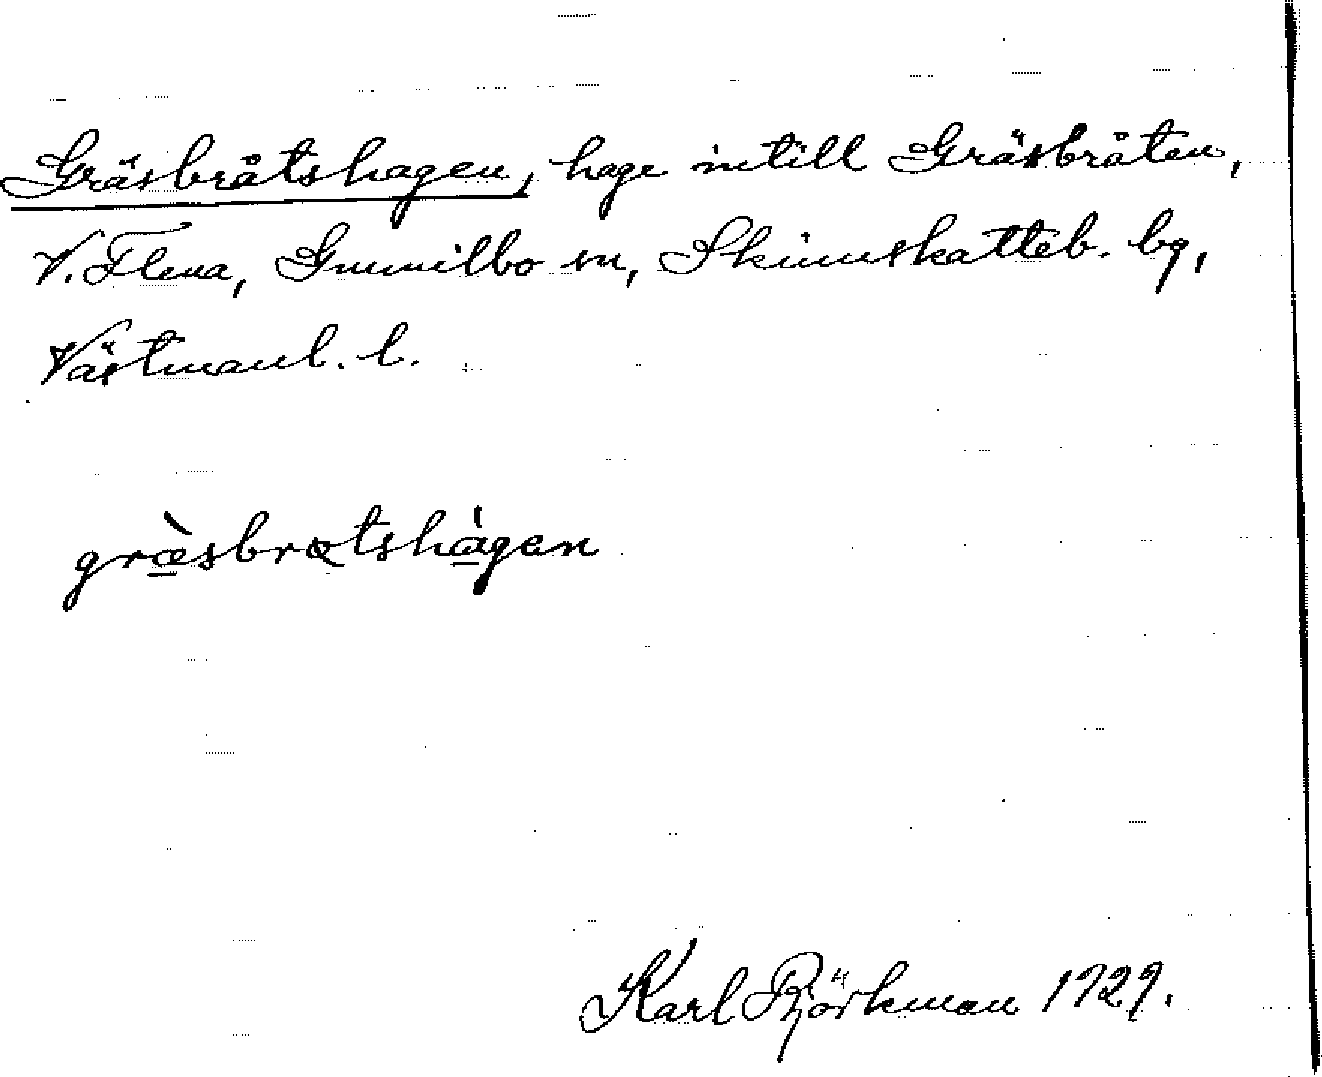 Gräsbråtshagen, hage intill Gräsbråten,
V. Flena, Gunnilbo sn, Skinnskatteb. bg,
Västmanl. l.
græ̀sbrɷtshàgen
Karl Björkman 1929.